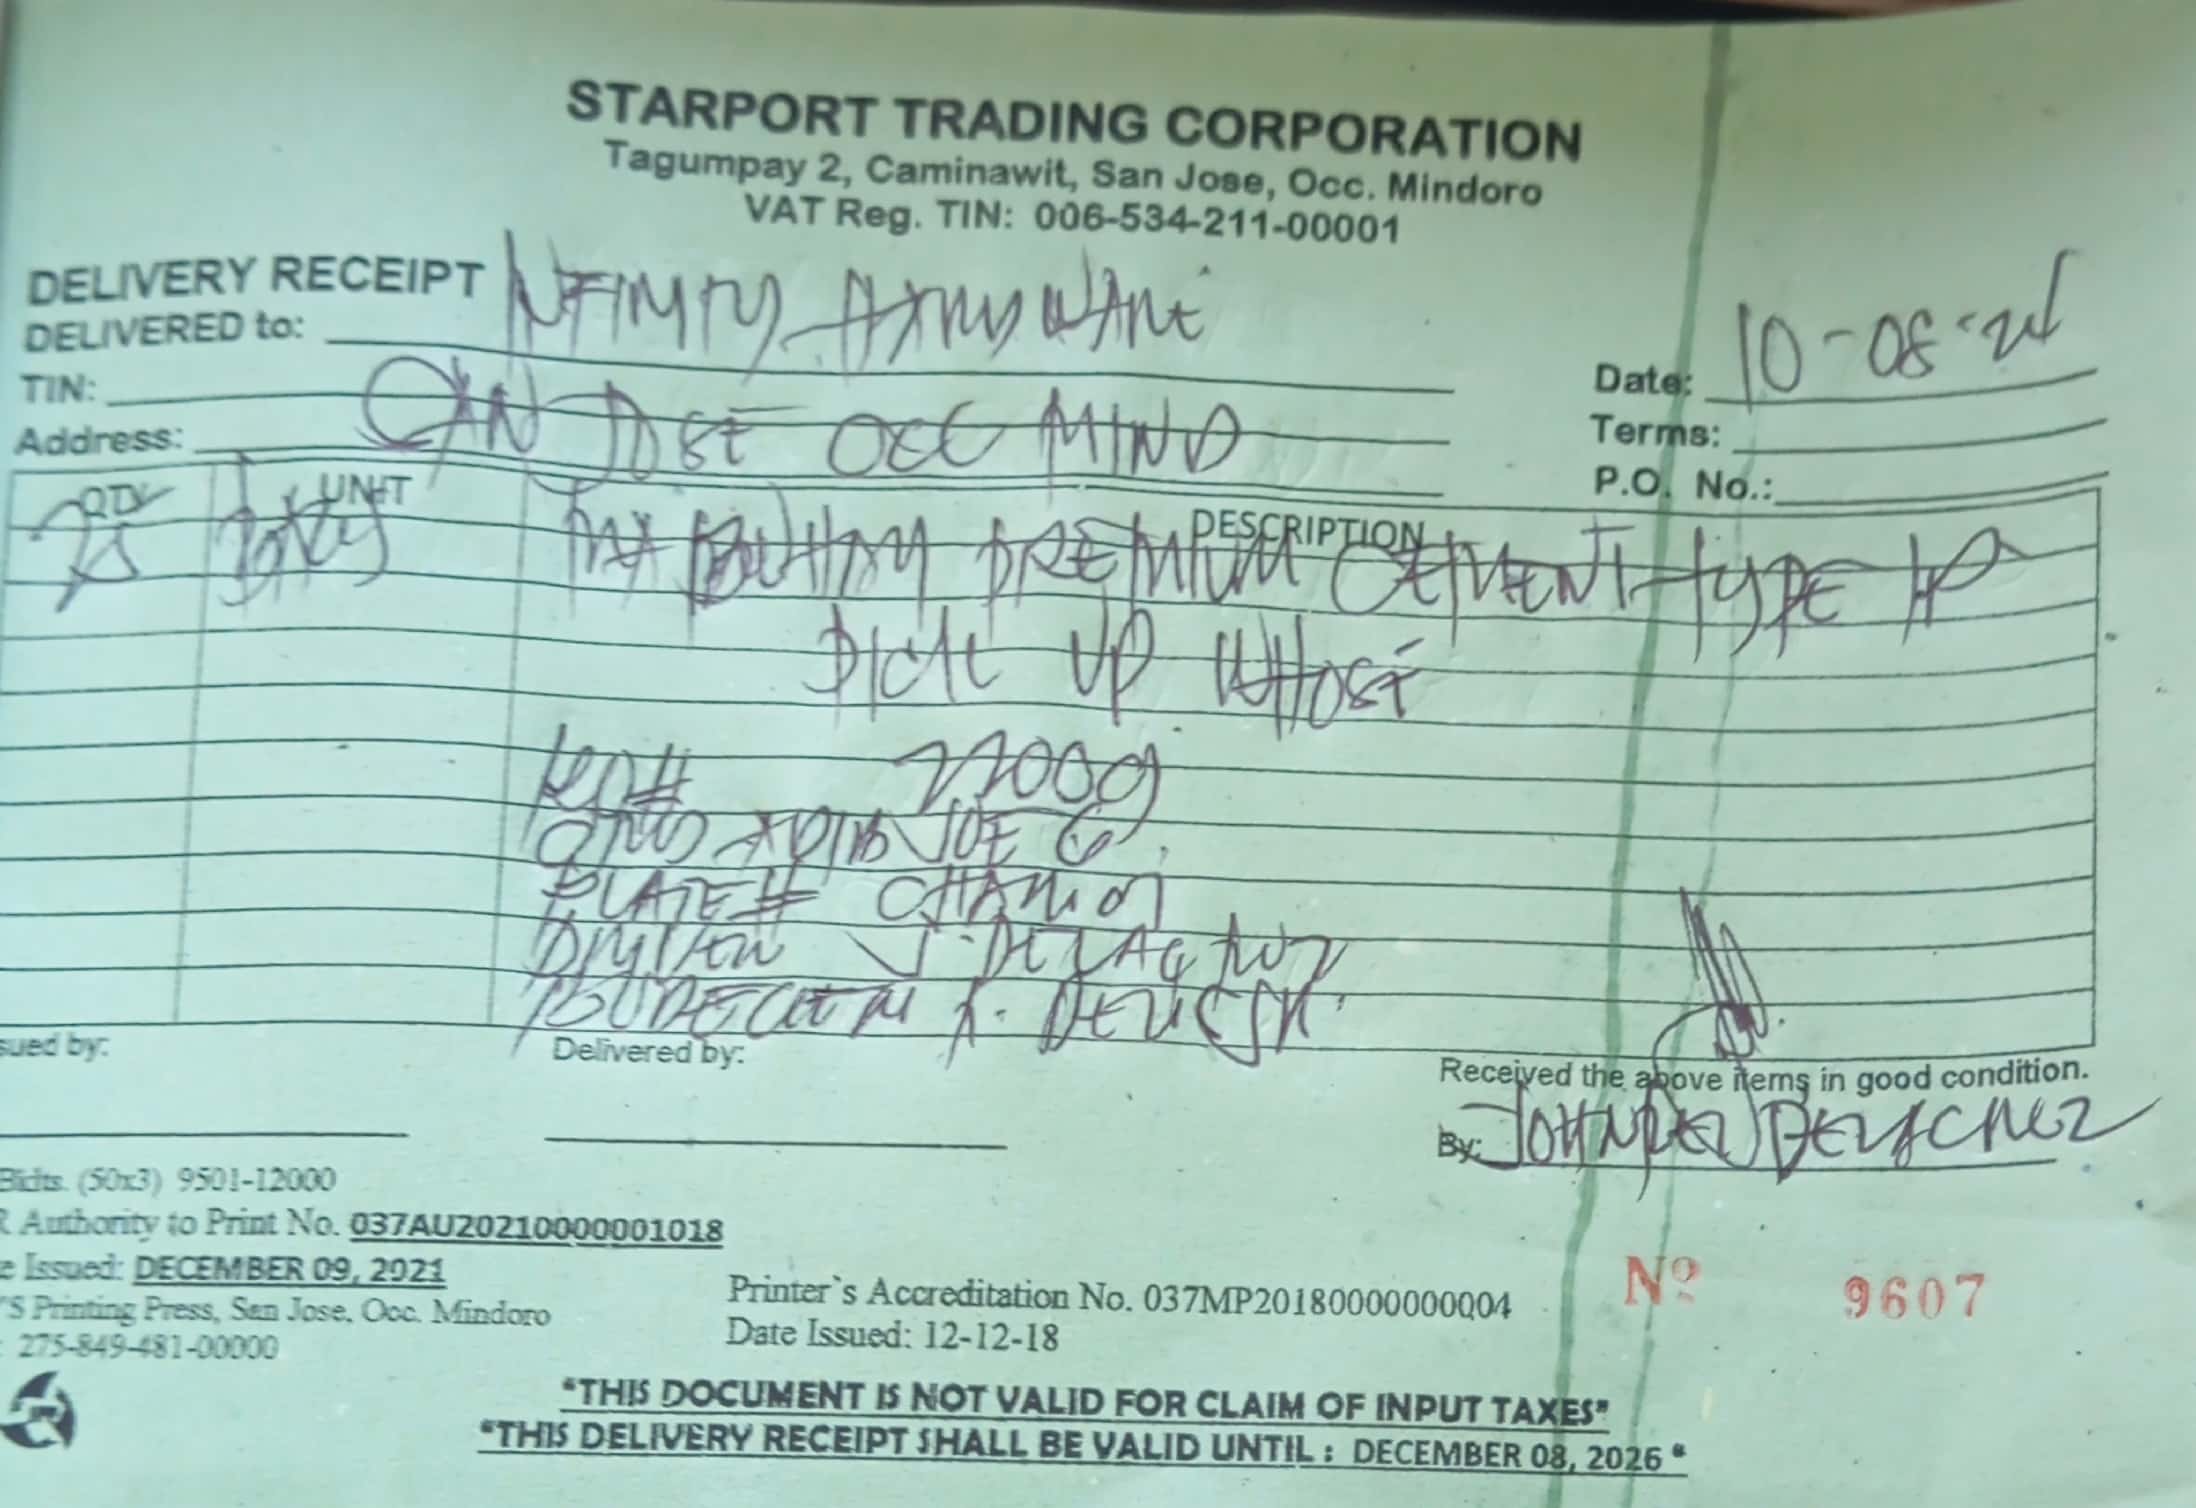 STARPORT TRADING CORPORATION
Tagumpay 2, Caminawit, San Jose, Occ. Mindoro
VAT Reg. TIN: 006-534-211-00001
DELIVERY RECEIPT
DELIVERED to: HARDWARE
TIN:
Address: SAN JOSE OCC MIND
Date: 10-08-24
Terms:
P.O. No.:
QTY UNIT DESCRIPTION
75 PREMIUM CEMENT TYPE 1P
PICK UP WHOSE
22009
JOE
PLATE#
DRIVER
sued by:
Delivered by:
Received the above items in good condition.
By: JOHNREY
Bklts. (50x3) 9501-12000
R Authority to Print No. 037AU20210000001018
e Issued: DECEMBER 09, 2021
'S Printing Press, San Jose, Occ. Mindoro
: 275-849-481-00000
Printer`s Accreditation No. 037MP20180000000004
Date Issued: 12-12-18
Nº 9607
"THIS DOCUMENT IS NOT VALID FOR CLAIM OF INPUT TAXES"
"THIS DELIVERY RECEIPT SHALL BE VALID UNTIL : DECEMBER 08, 2026 "